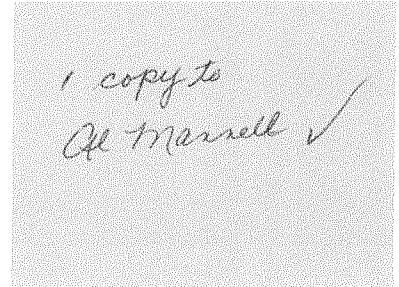 1 copy to
Al Mansell ✓